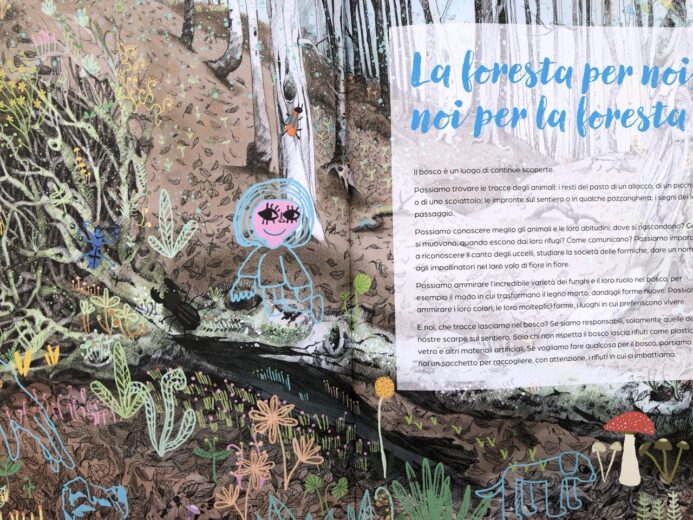 La foresta per noi
noi per la foresta
Il bosco è un luogo di continue scoperte.
Possiamo trovare le tracce degli animali: i resti del pasto di un allocco, di un picchi
o di uno scoiattolo; le impronte sul sentiero o in qualche pozzanghera; i segni del l
passaggio.
Possiamo conoscere meglio gli animali e le loro abitudini: dove si nascondono? C
si muovono, quando escono dai loro rifugi? Come comunicano? Possiamo impara
a riconoscere il canto degli uccelli, studiare la società delle formiche, dare un nom
agli impollinatori nel loro volo di fiore in fiore.
Possiamo ammirare l'incredibile varietà dei funghi e il loro ruolo nel bosco, per
esempio il modo in cui trasformano il legno morto, dandogli forme nuove. Possia
ammirare i loro colori, le loro molteplici forme, i luoghi in cui preferiscono vivere.
E noi, che tracce lasciamo nel bosco? Se siamo responsabili, solamente quelle de
nostre scarpe sul sentiero. Solo chi non rispetta il bosco lascia rifiuti come plastica
vetro e altri materiali artificiali. Se vogliamo fare qualcosa per il bosco, portiamo
noi un sacchetto per raccogliere, con attenzione, i rifiuti in cui ci imbattiamo.